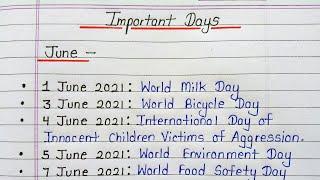 Important Days
June –
• 1 June 2021: World Milk Day
• 3 June 2021: World Bicycle Day
• 4 June 2021: International Day of
Innocent Children Victims of Aggression.
• 5 June 2021: World Environment Day
• 7 June 2021: World Food Safety Day